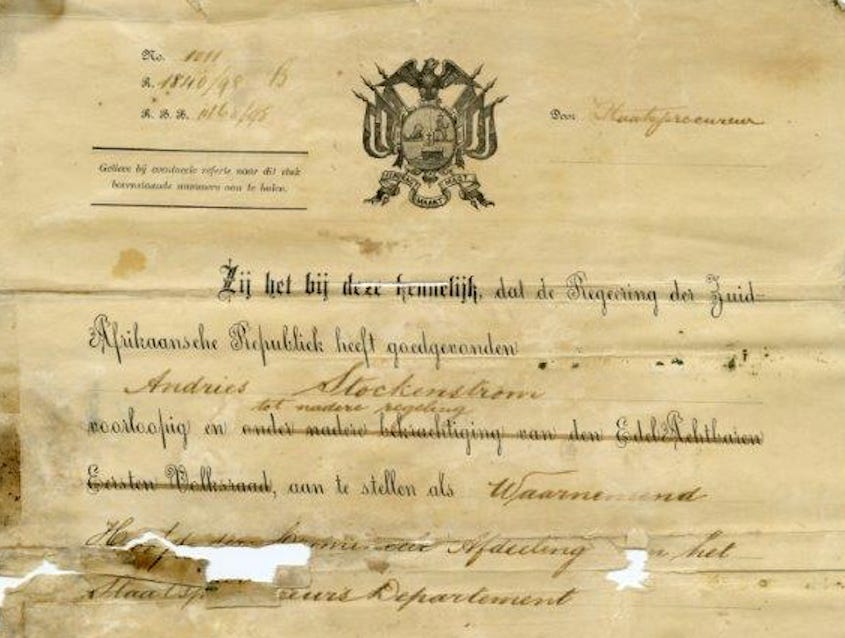 No. 1011
R. 1840/98 B
R. B. B.
Door Staatsprocureur
Gelieve bij eventueele referte naar dit stuk
bovenstaande nummers aan te halen.
EENDRAGT MAAKT MAGT
Zij het bij deze kennelijk, dat de Regeering der Zuid-
Afrikaansche Republiek heeft goedgevonden
Andries Stockenstrom
tot nadere regeling
voorloopig en onder nadere bekrachtiging van den Edel Achtbaren
Eersten Volksraad, aan te stellen als Waarnemend
Hoofd der Afdeeling van het
Departement